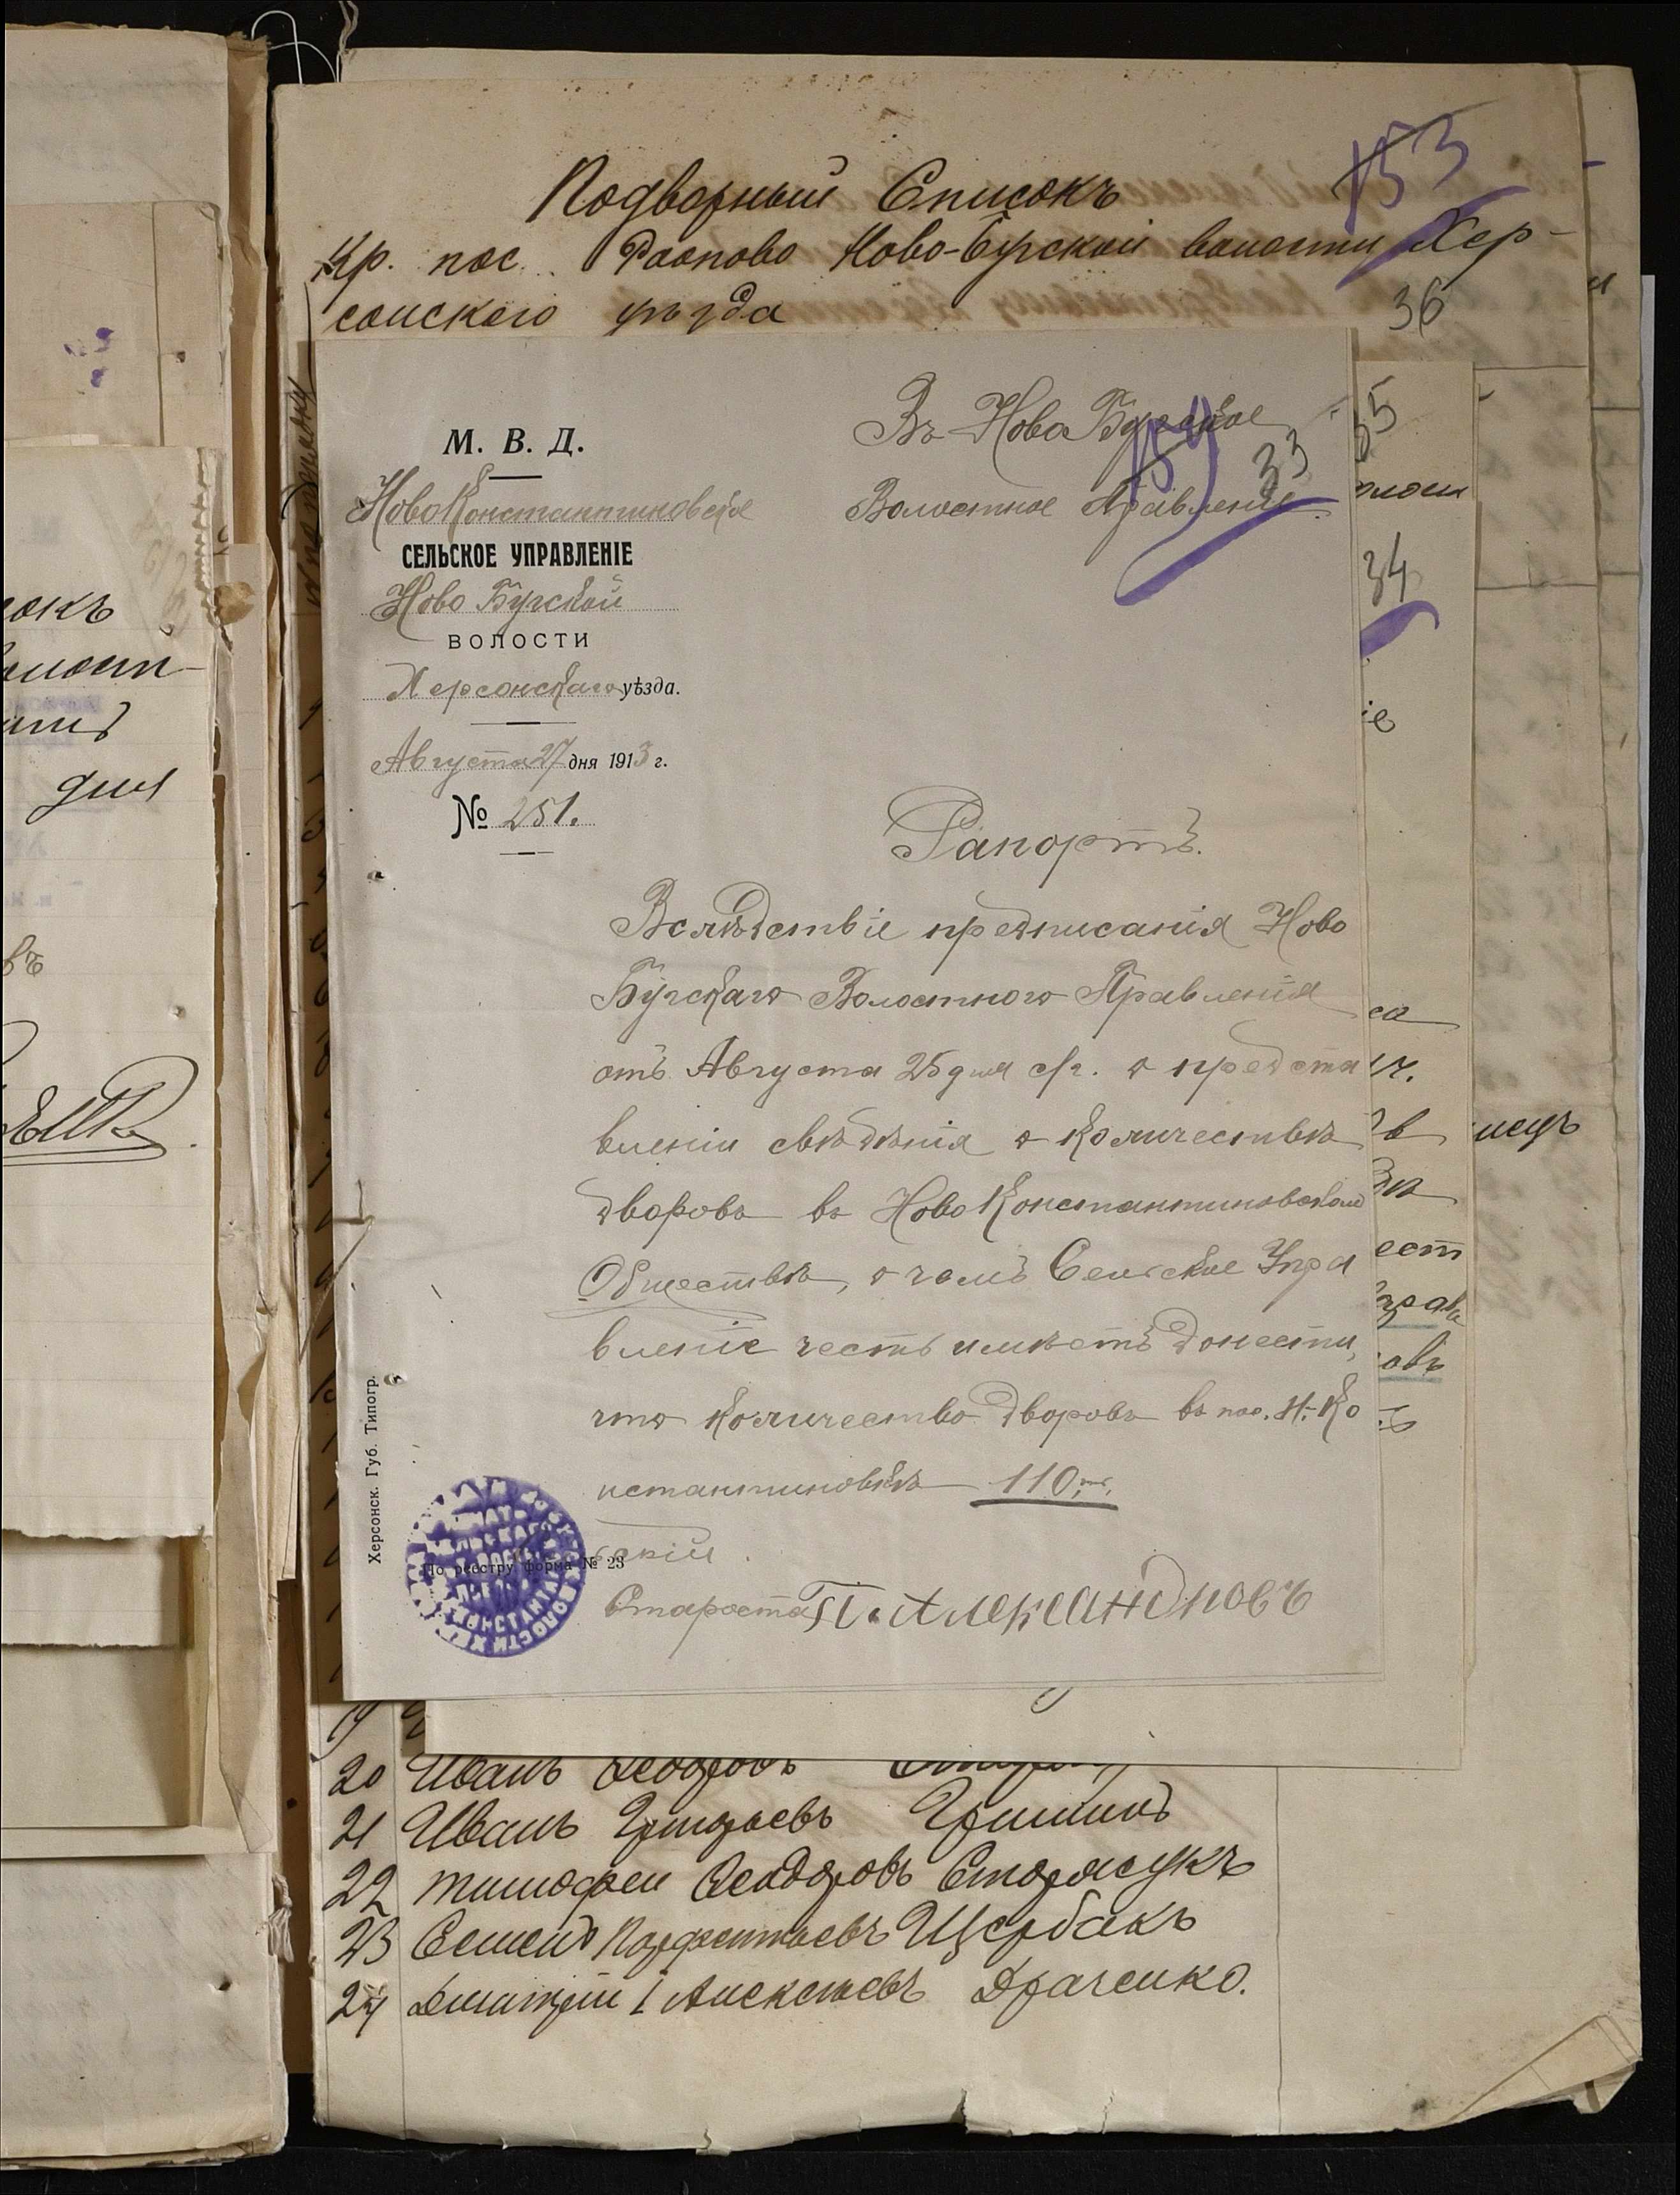 153
Подворный Списокъ
Кр. пос. Ново-Бугской волости Хер-
сонскаго уѣзда
36
М. В. Д.
НовоКонстантиновское
СЕЛЬСКОЕ УПРАВЛЕНІЕ
Ново Бугской
ВОЛОСТИ
Херсонскаго уѣзда.
Августа 27 дня 1913 г.
№ 251.
Въ Ново Бугское
Волостное Правленіе
33
35
34
Рапортъ.
Вслѣдствіе предписанія Ново
Бугскаго Волостного Правленія
отъ Августа 25 дня с/г. о предста
вленіи свѣдѣнія о количествѣ
дворовъ въ НовоКонстантиновскомъ
Обществѣ, о чемъ Сельское Упра
вленіе честь имѣетъ донести,
что количество дворовъ въ пос. Н.-Ко
нстантиновкѣ 110.
Херсонск. Губ. Типогр.
По реестру форма № 23
Староста П. Александровъ
19
20 Иванъ Ѳеодоровъ
21 Иванъ Григорьевъ Гришинъ
22 Тимофей Ѳеодоровъ Сторожукъ
23 Семенъ Парфентьевъ Щербакъ
24 Дмитрій 1 Алексѣевъ Драченко.
окъ
дня